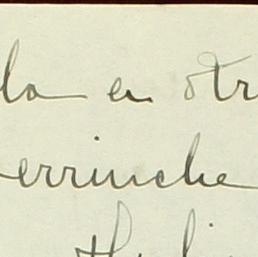 la en otr
errinche